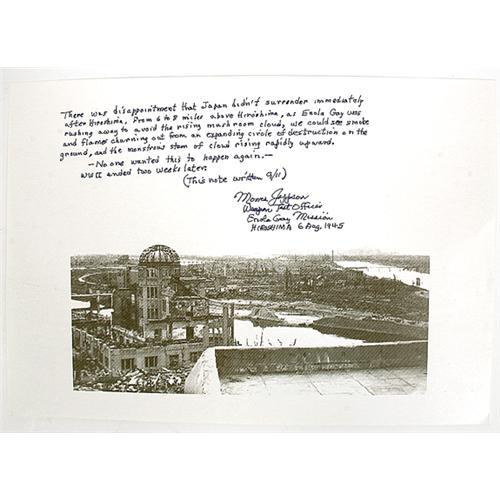 There was disappointment that Japan didn't surrender immediately
after Hiroshima. From 6 to 8 miles above Hiroshima, as Enola Gay was
rushing away to avoid the rising mushroom cloud, we could see smoke
and flames churning out from an expanding circle of destruction on the
ground, and the monstrous stem of cloud rising rapidly upward.
—No one wanted this to happen again.—
WWII ended two weeks later.
(This note written 9/11)
Morris Jeppson
Weapon Test Officer
Enola Gay Mission
HIROSHIMA 6 Aug. 1945